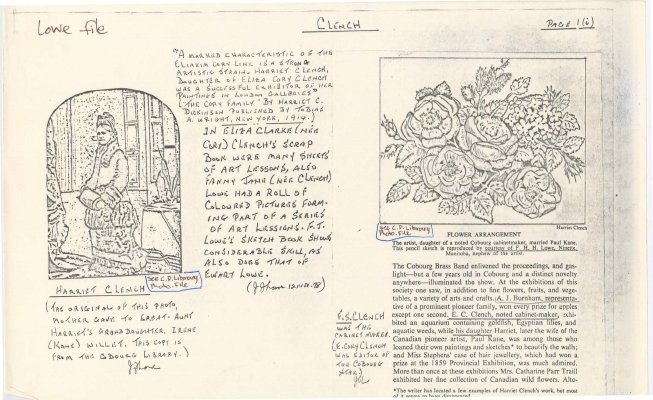 Lowe file
CLENCH
PAGE 1(i)
"A MARKED CHARACTERISTIC OF THE
ELIAKIM CORY LINE IS A STRONG
ARTISTIC STRAIN. HARRIET CLENCH,
DAUGHTER OF ELIZA CORY CLENCH
WAS A SUCCESSFUL EXHIBITOR OF HER
PAINTINGS IN LONDON GALLERIES"
(THE CORY FAMILY" BY HARRIET C.
DICKINSON PUBLISHED BY TOBIAS
A. WRIGHT, NEW YORK, 1914.)
IN ELIZA CLARKE (NÉE
CORY) CLENCH'S SCRAP
BOOK WERE MANY SHEETS
OF ART LESSONS, ALSO
FANNY JANE (NÉE CLENCH)
LOWE HAD A ROLL OF
COLOURED PICTURES FORM-
ING PART OF A SERIES
OF ART LESSIONS. F.J.
LOWE'S SKETCH BOOK SHOWS
CONSIDERABLE SKILL, AS
ALSO DOES THAT OF
EWART LOWE.
See C.P. Library
Photo. File
HARRIET CLENCH
(THE ORIGINAL OF THIS PHOTO,
MOTHER GAVE TO GREAT-AUNT
HARRIET'S GRANDDAUGHTER, IRENE
(KANE) WILLET. THIS COPY IS
FROM THE COBOURG LIBRARY.)
F.S. CLENCH
WAS THE
CABINET MAKER.
(E. CORY CLENCH
WAS EDITOR OF
THE COBOURG
STAR)
See C.P. Library
Photo. File
Harriet Clench
FLOWER ARRANGEMENT
The artist, daughter of a noted Cobourg cabinetmaker, married Paul Kane.
This pencil sketch is reproduced by courtesy of F. H. H. Lowe, Ninette,
Manitoba, nephew of the artist.
The Cobourg Brass Band enlivened the proceedings, and gas-
light—but a few years old in Cobourg and a distinct novelty
anywhere—illuminated the show. At the exhibitions of this
society one saw, in addition to fine flowers, fruits, and vege-
tables, a variety of arts and crafts. A. J. Burnham, representa-
tive of a prominent pioneer family, won every prize for apples
except one second. E. C. Clench, noted cabinet-maker, exhi-
bited an aquarium containing goldfish, Egyptian lilies, and
aquatic weeds, while his daughter Harriet, later the wife of the
Canadian pioneer artist, Paul Kane, was among those who
loaned their own paintings and sketches* to beautify the walls;
and Miss Stephens' case of hair jewellery, which had won a
prize at the 1859 Provincial Exhibition, was much admired.
More than once at these exhibitions Mrs. Catharine Parr Traill
exhibited her fine collection of Canadian wild flowers. Alto-
*The writer has located a few examples of Harriet Clench's work, but most